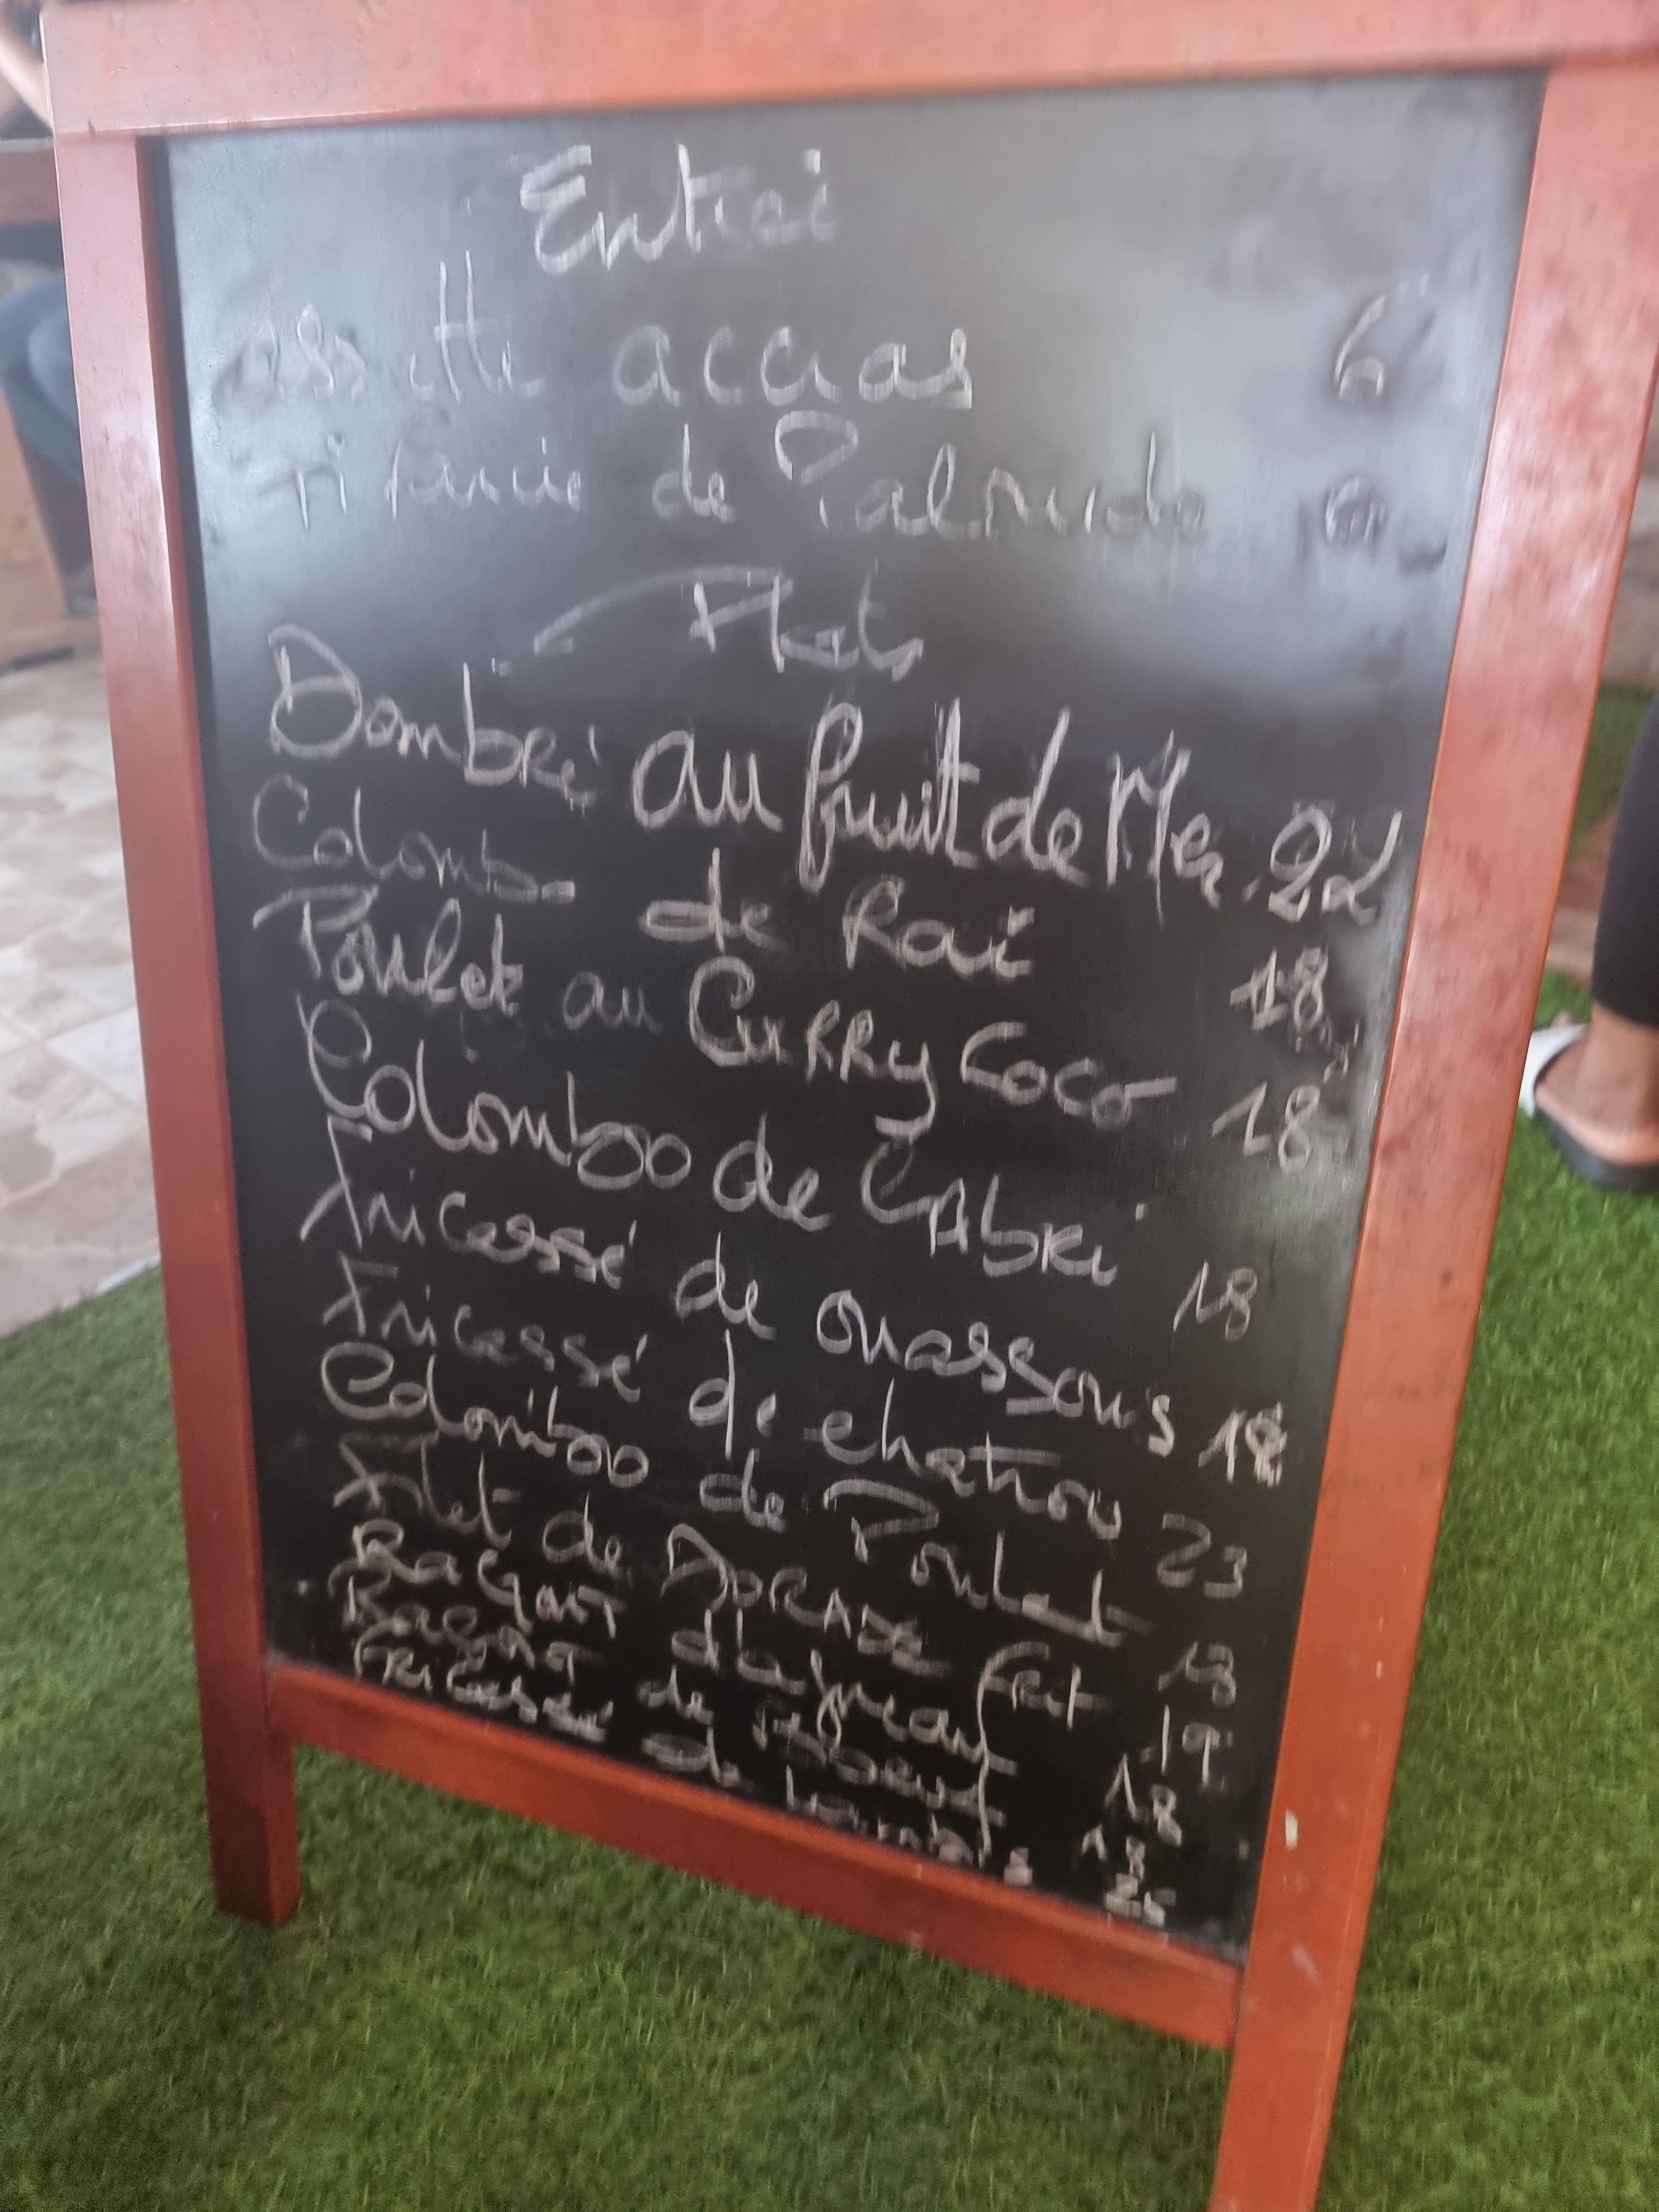 Entrei
assiette accras 6
Ti farcie de Palourde
Plats
Dombré au fruit de Mer 22
Colombo de Rai 18
Poulet au Curry Coco 18
Colombo de Cabri 18
Fricassé de ouassous 18
Fricassé de chatrou 23
Colombo de Poulet 18
Filet de Dorade frit 19
Ragout d'agneau 18
Ragout de
Fricassé de lambis